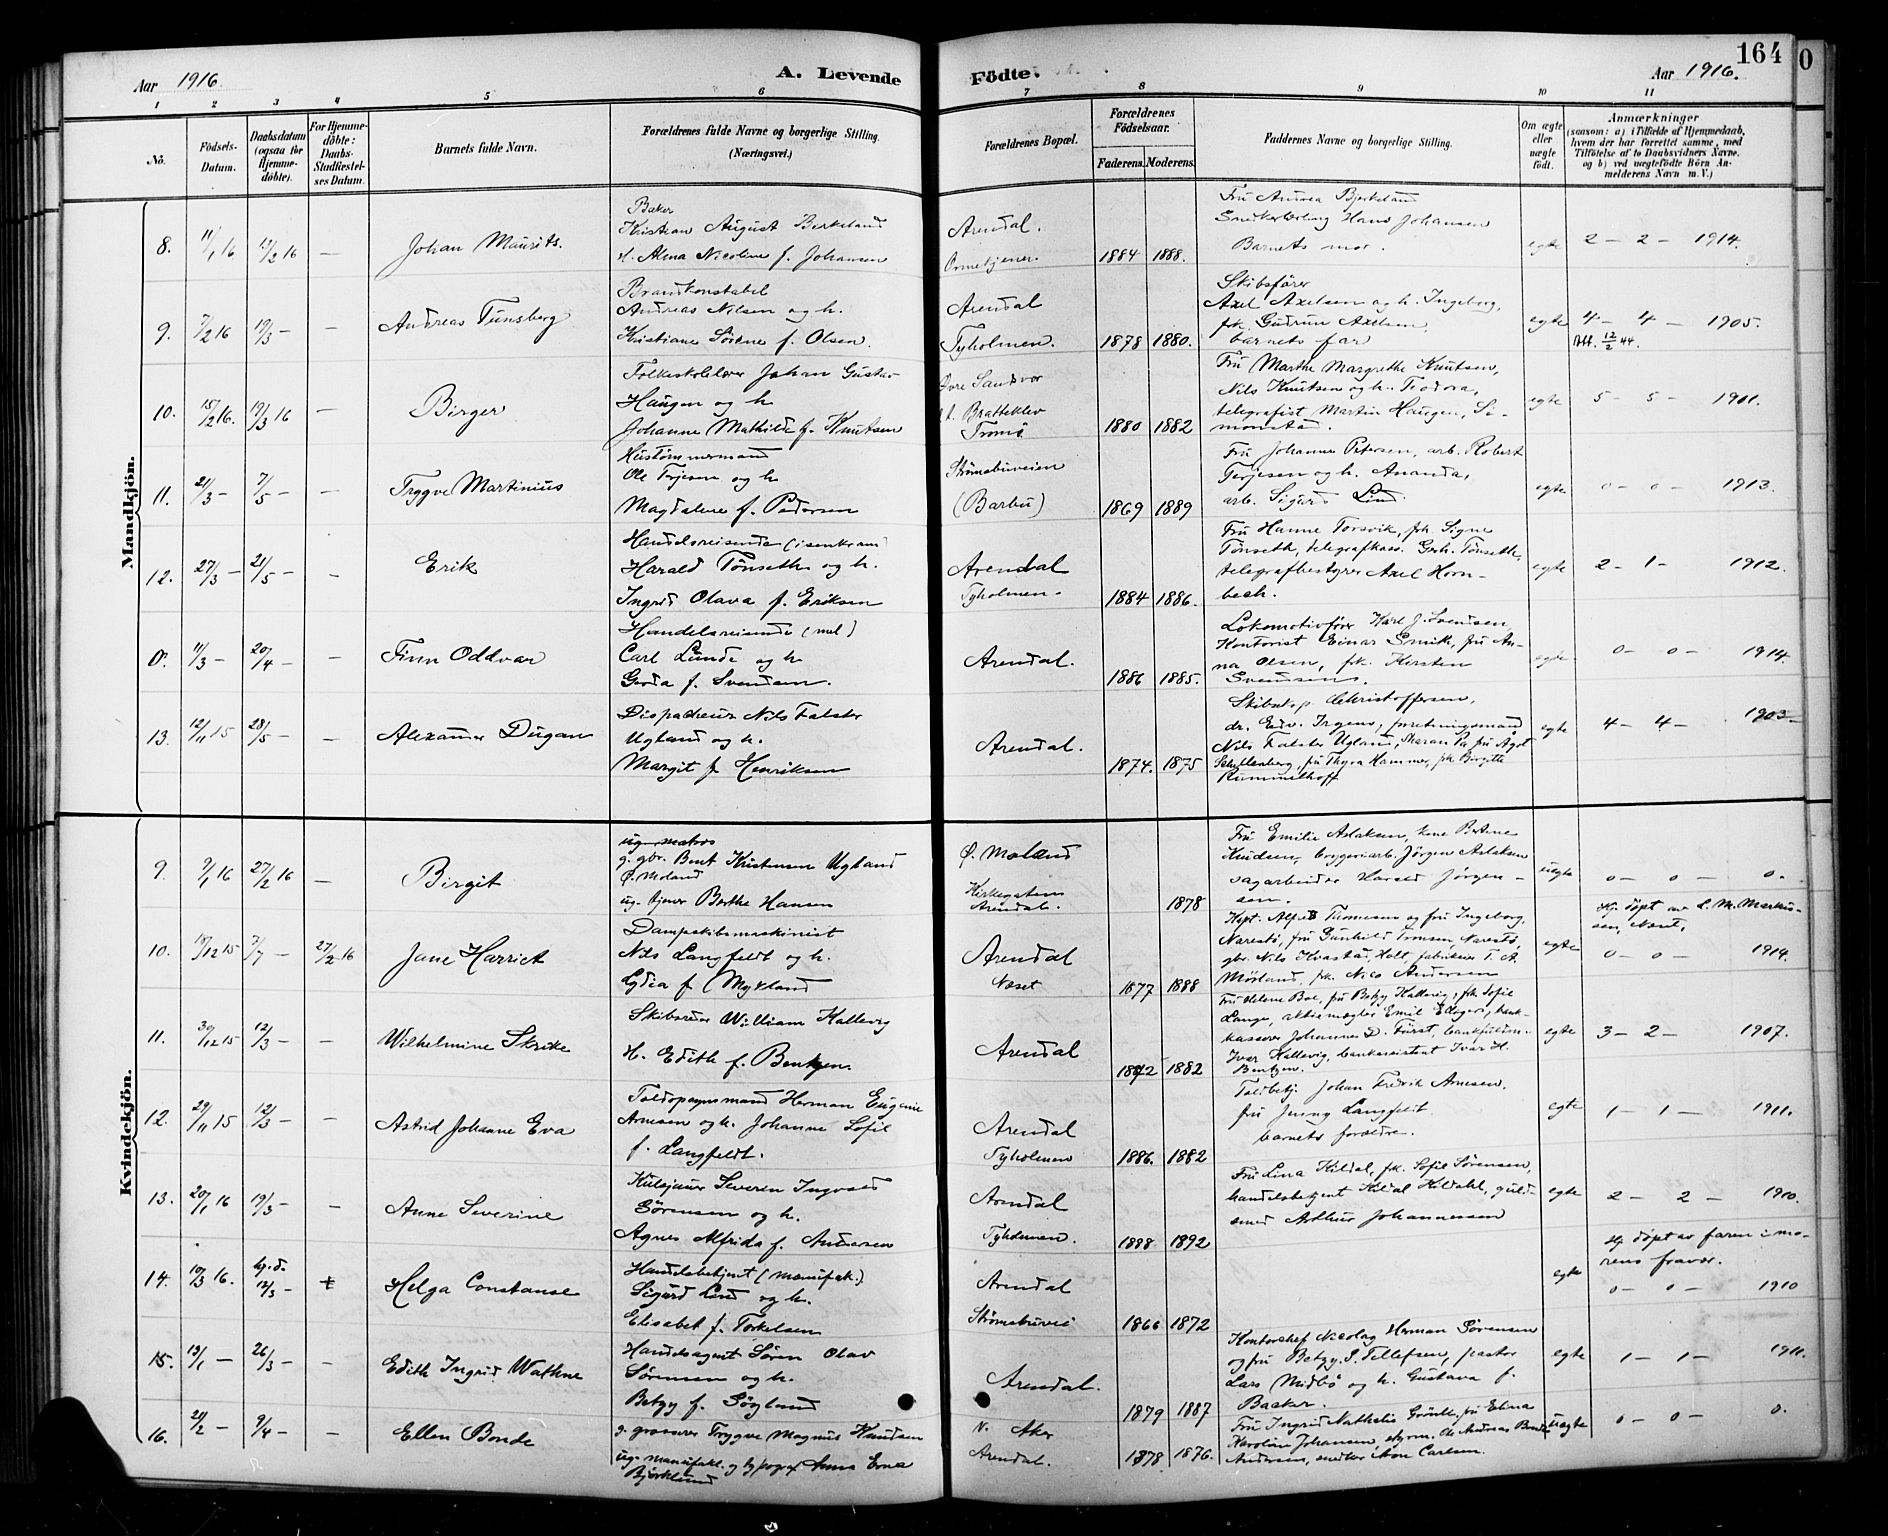 164
0
Aar 1916.
A. Levende
Födte.
Aar 1916.
1 2 3 4 5 6 7 8 9 10 11
No.
Födsels-Datum.
Daabsdatum (ogsaa for Hjemme-döbte).
For Hjemme-döbte: Daabs-Stadfæstel-ses Datum.
Barnets fulde Navn.
Forældrenes fulde Navne og borgerlige Stilling. (Næringsvei.)
Forældrenes Bopæl.
Forældrenes Födselsaar.
Faderens. Moderens.
Faddernes Navne og borgerlige Stilling.
Om ægte eller uægte født.
Anmærkninger
(saasom: a) i Tilfælde af Hjemmedaab, hvem der har forrettet samme, med Tilføielse af to Daabsvidners Navne, og b) ved uægtefødte Børn An-melderens Navn m. V.)
Mandkjön.
8. 11/1 16 — Johan Maurits.
Baker
Kristian August Birkeland
H. Alma Nicoline f. Johansen
Arendal.
1884 1888.
Fru Aurora Bjerkeland
Hans Johansen
Barnets mor.
egte 2 — 2 — 1914.
9. 7/2 16 19/3 — — Andreas Tunsberg
Brandkonstabel
Andreas Nilsen og h.
Kristiane Sörine f. Olsen.
Arendal
Tyholmen.
1878 1880.
Skibsfører
Axel Axelsen og h. Ingeborg,
frk. Gudrun Axelsen,
barnets far
egte 4 — 4 — 1905.
12/2 44.
10. 15/2 16. 19/3 16 — Birger
Folkeskolelærer Johan Gustav
Haugen og h.
Johanne Mathilde f. Knutsen
Øvre Sandvor
Bratteklev
Tromö
1880 1882
Fru Marthe Margrethe Knutsen,
Nils Knutsen og h. Teodora,
telegrafist Martin Haugen, Si-
monstad.
egte 5 — 5 — 1901.
11. 21/3 — 7/5 — — Trygve Martinius
Hustømmermand
Ole Terjesen og h
Magdalene f. Pedersen
Strømsbuveien
(Barbu)
1869 1889
Fru Johanne Petersen, arb. Robert
Terjesen og h. Amanda,
arb. Sigurd Lind.
egte 0 — 0 — 1913.
12. 27/3 — 21/5 — — Erik
Handelsreisende (isenkram)
Harald Tönseth og h.
Ingrid Olava f. Eriksen
Arendal
Tyholmen.
1884 1886.
Fru Hanne Torsvik, frk. Signe
Tönseth, telegrafkass. Gerh. Tönseth,
telegrafbestyrer Axel Horn-
bech.
egte 2 — 1 — 1912.
0. 11/3 — 20/4 — — Finn Oddvar
Handelsreisende (mel)
Carl Lunde og h
Gerda f. Svendsen.
Arendal.
1886 1885.
Lokomotivfører Karl J. Svendsen,
Kontorist Einar Smith, fru An-
na Olsen, frk. Kirsten
Svendsen.
egte 0 — 0 — 1914.
13. 12/11 15 28/5 — — Alexander Dugan
Dispachør Nils Falster
Ugland og h.
Margit f. Henriksen
Arendal.
1874. 1875
Skibskap. Christoffersen,
dr. Edv. Irgens, forretningsmand
Nils Falster Ugland, Sharan Pa fru Agot
Schyttenberg, fru Thyra Hammer, frk. Birgitte
Rummelhoff
egte 4 — 4 — 1903
Kvindekjön.
9. 9/1 16 27/2 16 — Birgit
ug. matros
g. gbr. Bent Kristensen Ugland
Ø. Moland
ug. tjener Berthe Hansen
Ø. Moland
Kirkegaten
Arendal.
1878
Fru Emilie Aslaksen, kone Bertine
Knudsen, bryggeriarb. Jörgen Aslaksen
sagarbeider Harald Jörgen-
sen.
uegte 0 — 0 — 0.
10. 19/12 15 7/7 — 27/2 16 Jane Harriet
Dampskibsmaskinist
Nils Langfeldt og h.
Lydia f. Mykland
Arendal
Næset
1877 1888
Kapt. Alfred Thomesen og fru Ingeborg,
Narestö, fru Gunhild Tronsen, Narestö,
gbr. Nils Kvastad, Holt, fabrikeier T. A.
Mörland, frk. Nico Andersen
egte
Hj. döpt av L. M. Marku-
sen, Næset,
0 — 0 — 1914.
11. 30/12 15 12/3 — — Wilhelmine Skrike
Skibsreder William Kallevig
H. Edith f. Bentzen.
Arendal
1872 1882
Fru Helene Boe, fru Betzy Kallevig, frk. Sofie
Lange, aktiemægler Emil Edgers, bank-
kasserer Johannes D. Fürst,
Ivar Kallevig, bankassistent Ivar H.
Bentzen.
egte 3 — 2 — 1907.
12. 29/11 15 12/3 — — Astrid Johanne Eva
Toldopsynsmand Herman Eugenie
Arnesen og h. Johanne Sofie
f. Langfeldt.
Arendal
Tyholmen
1886. 1882
Toldbetj. Johan Fredrik Arnesen.
fru Jenny Langfeldt.
barnets forældre.
egte 1 — 1 — 1911.
13. 20/1 16 19/3 — — Anne Severine
Kulsjauer Severin Ingvald
Sörensen og h.
Agnes Alfrida f. Andersen
Arendal
Tyholmen.
1888 1892
Fru Lina Kildal, frk. Sofie Sörensen,
handelsbetjent Kildal Kildahl, guld-
smed Arthur Johannessen
egte 2 — 2 — 1910.
14. 10/3 16. hj.d. 12/3 — Helga Constanse
Handelsbetjent (manufak.)
Sigurd Lund og h.
Elisabet f. Torkelsen
Arendal
Strømsbuvei
1866 1872
egte
Hj döpt av faren i mo-
rens fravær.
0 — 0 — 1910
15. 13/1 — 26/3 — — Edith Ingrid Wathne
Handelsagent Sören Olav
Sörensen og h.
Betzy f. Sögland
Arendal.
1879 1887
Kontorchef Nicolay Herman Sörensen
og fru Betzy J. Tellefsen, pastor
Lars Midbö og h. Gustava f.
Baaker.
egte 1 — 1 — 1911.
16. 21/2 — 9/4 — — Ellen Bonde
g. grosserer Trygve Magnus Knudsen
ug. manufakt. og typograf Anna Erna
Bjorklund
V. Aker
Arendal.
1878 1876.
Fru Ingrid Nathalie Grönli, fru Elina
Karoline Johansen, styrm. Ole Andreas Bonde
Andersen, snedker Aton Carlsen.
uegte 0 — 0 — 0.